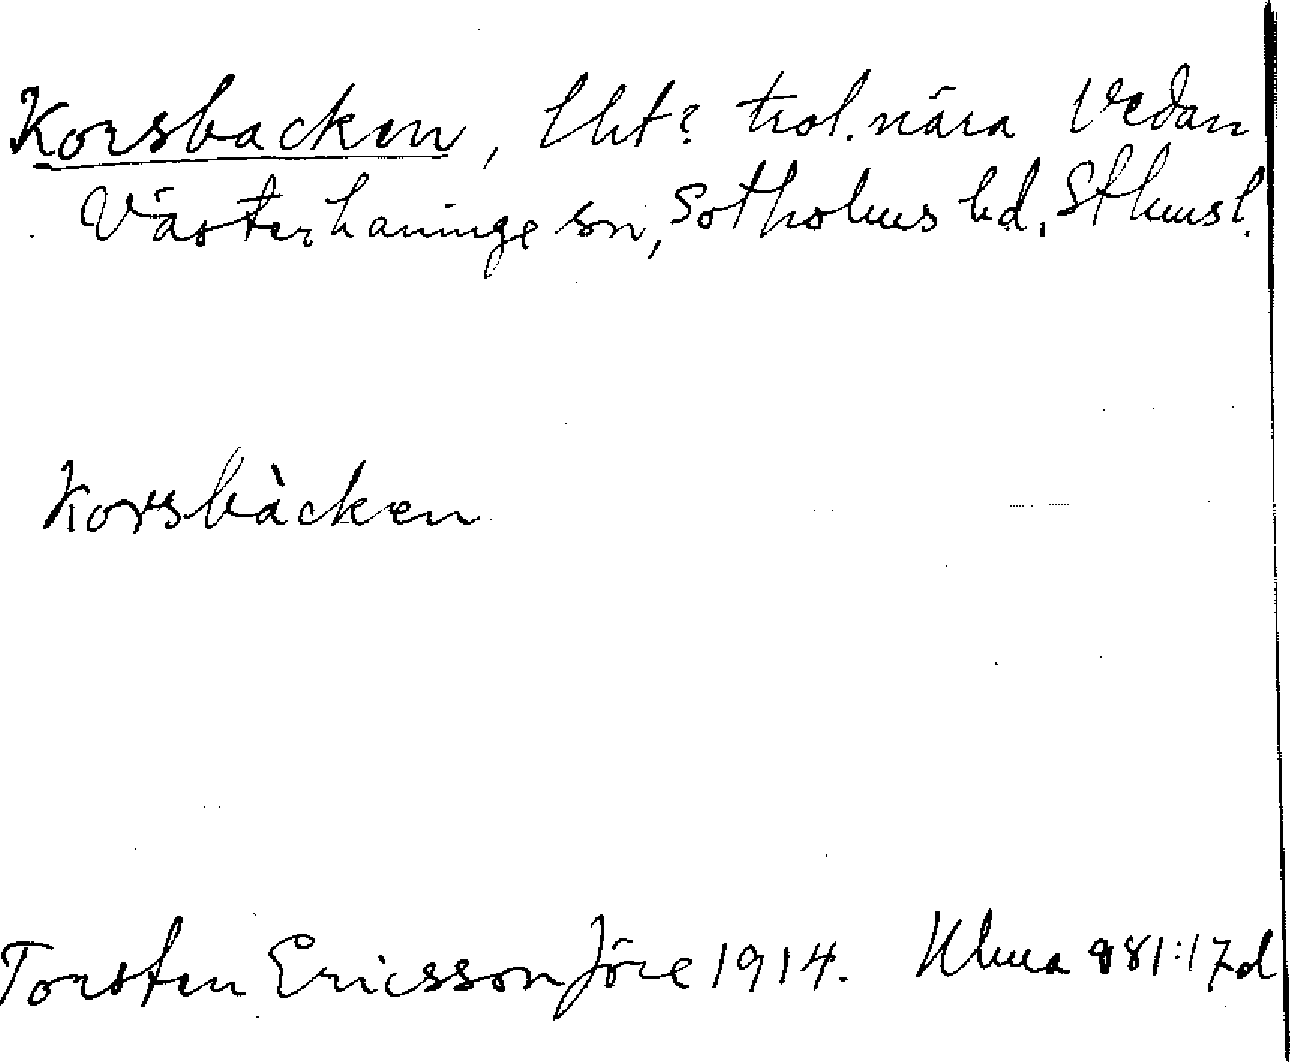 Korsbacken, lht? trol. nära Vedan
Västerhaninge sn, Sotholms hd, Sthmsl.
Korsbàcken
Torsten Ericsson före 1914. Uhma 81:17d